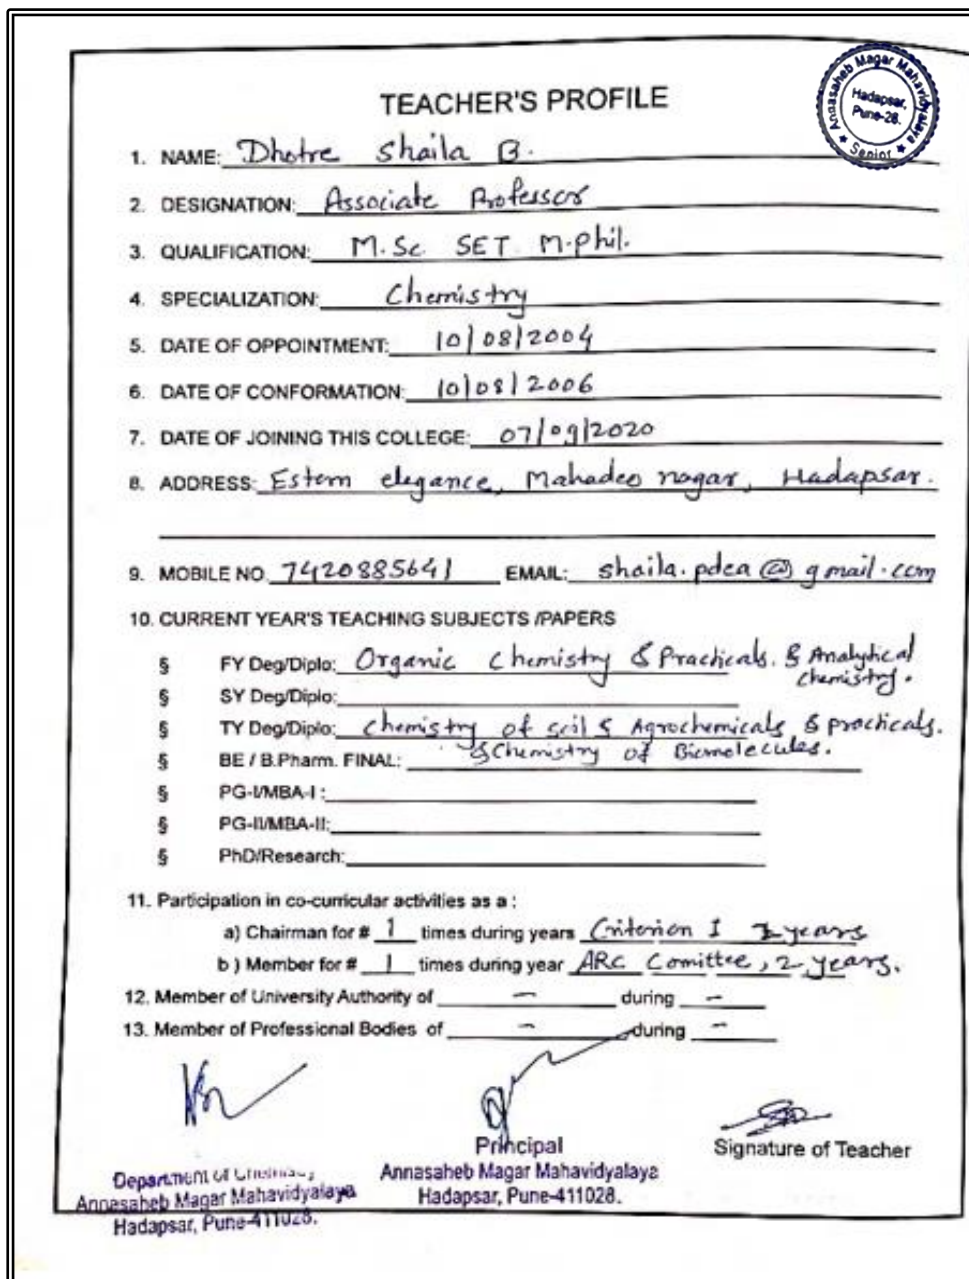 TEACHER'S PROFILE
Annasaheb Magar Mahavidyalaya
Hadapsar,
Pune-28.
★ Senior ★
1. NAME: Dhotre Shaila B.
2. DESIGNATION: Associate Professor
3. QUALIFICATION: M.Sc SET M.phil.
4. SPECIALIZATION: Chemistry
5. DATE OF OPPOINTMENT: 10/08/2004
6. DATE OF CONFORMATION: 10/08/2006
7. DATE OF JOINING THIS COLLEGE: 07/09/2020
8. ADDRESS: Estern elegance, Mahadeo nagar, Hadapsar.
9. MOBILE NO. 7420885641 EMAIL: shaila.pdea@gmail.com
10. CURRENT YEAR'S TEACHING SUBJECTS /PAPERS
§ FY Deg/Diplo: Organic Chemistry & Practicals. & Analytical
chemistry.
§ SY Deg/Diplo:
§ TY Deg/Diplo: Chemistry of soil & Agrochemicals & practicals.
& Chemistry of Biomolecules.
§ BE / B.Pharm. FINAL:
§ PG-I/MBA-I :
§ PG-II/MBA-II:
§ PhD/Research:
11. Participation in co-curricular activities as a :
a) Chairman for # 1 times during years Criterion I years
b ) Member for # 1 times during year ARC Comittee, 2 years.
12. Member of University Authority of - during -
13. Member of Professional Bodies of - during -
Principal
Signature of Teacher
Annasaheb Magar Mahavidyalaya
Hadapsar, Pune-411028.
Department of
Annasaheb Magar Mahavidyalaya
Hadapsar, Pune-411028.